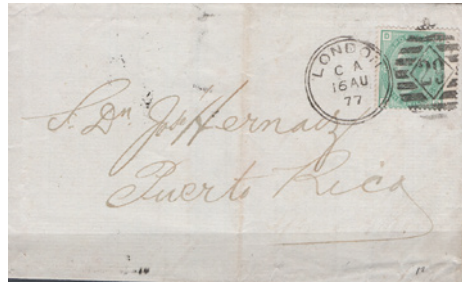 D
LONDON
C A
16 AU
77
29
Sr. Dn. José Hernaiz
Puerto Rico